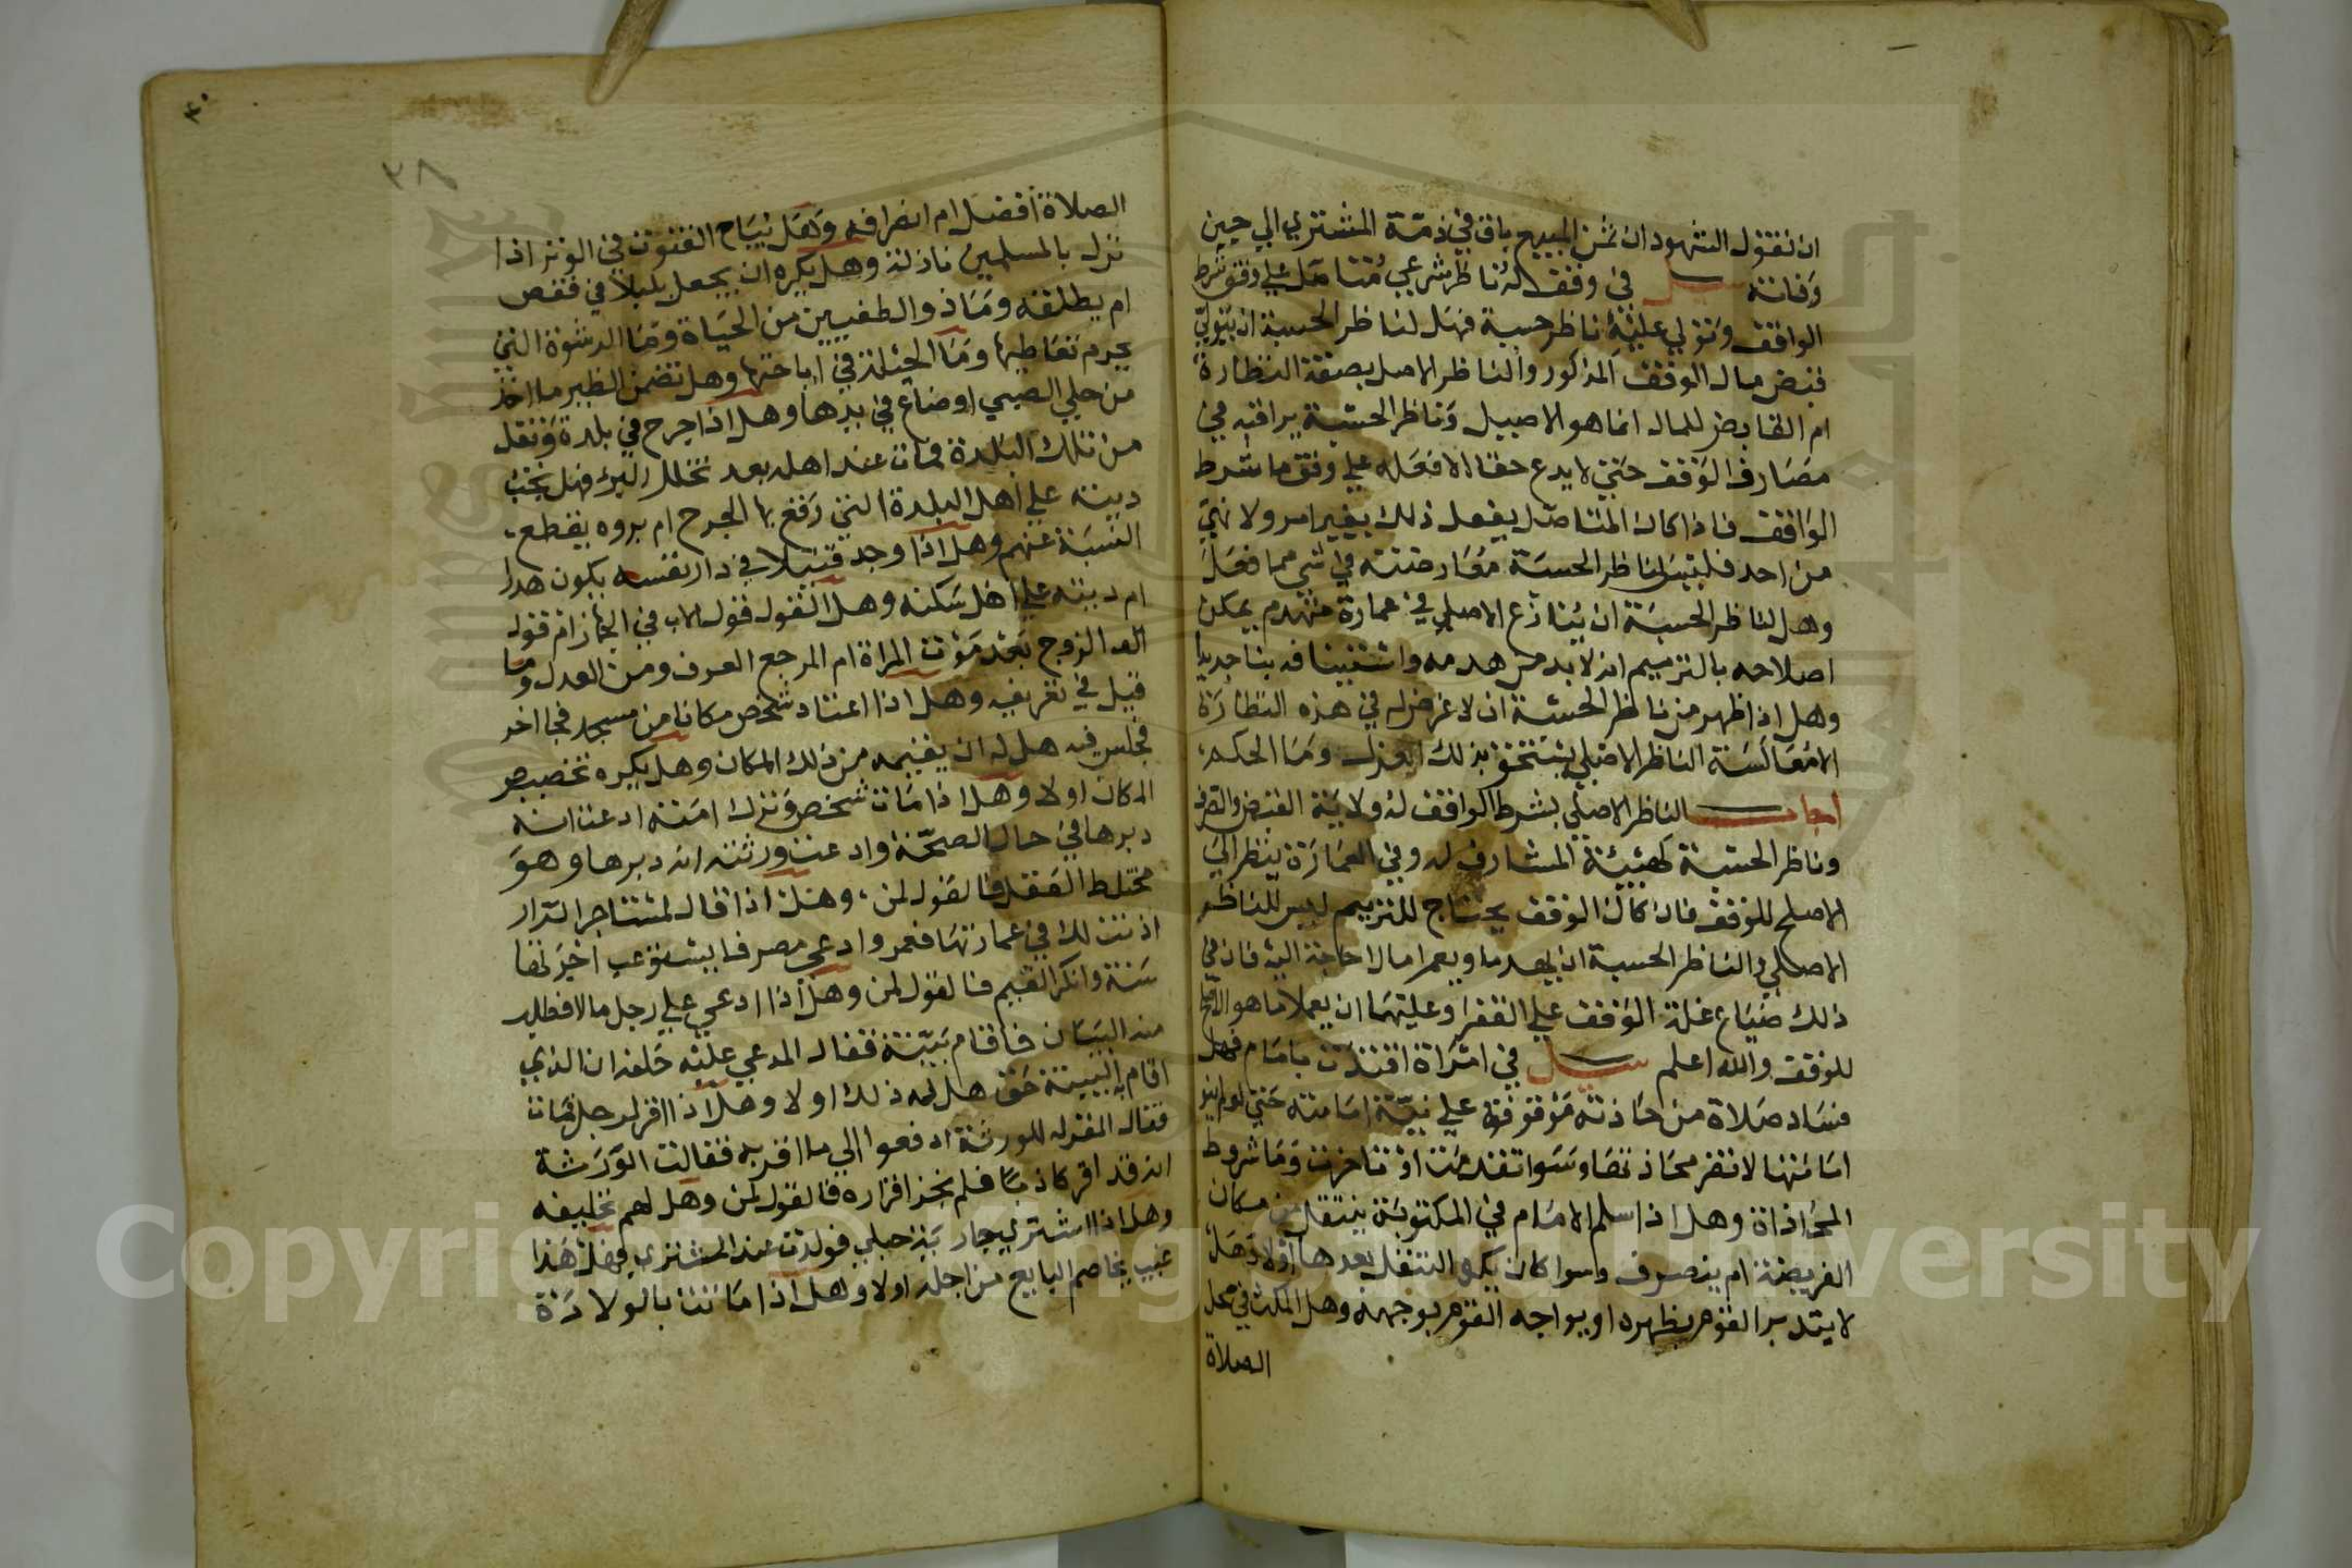 ان نقول الشهود ان ثمن المبيع باق في ذمة المشتري الي حين
وفاته سئل في وقف له ناظر شرعي متناهل علي وفق شرط
الواقف وتولي عليه ناظر حسبة فهل لناظر الحسبة ان يتولي
قبض مال الوقف المذكور والناظر الاصل بصفة النظارة
ام القابض للمال انما هو الاصيل وناظر الحسبة يرافقه في
مصارف الوقف حتي لا يدع حقا الا فعله علي وفق ما شرط
الواقف فاذا كان المتاصل يفعل ذلك بغير امر ولا نهي
من احد فليس لناظر الحسبة معارضته في شي مما فعل
وهل لناظر الحسبة ان ينازع الاصلي في عمارة منهدم يمكن
اصلاحه بالترميم انه لا بد من هدمه واستينافه بنا جديدا
وهل اذا ظهر من ناظر الحسبة ان لا غرض له في هذه النظارة
الا معاكسة الناظر الاصلي يستحق بذلك العزل وما الحكم
اجاب الناظر الاصلي بشرط الواقف له ولاية القبض والتصرف
وناظر الحسبة كهيئة المشارف له وفي العمارة ينظر الي
الاصلح للوقف فاذا كان الوقف يحتاج للترميم ليس للناظر
الاصلي والناظر الحسبة ان يهدما ويعمرا مالا حاجة اليه فان في
ذلك ضياع غلة الوقف علي الفقرا وعليهما ان يعملا ما هو الاصلح
للوقف والله اعلم سئل في امراة اقتدت بامام فهل
فساد صلاة من حاذته موقوفة علي نية امامته حتي لو لم ينو
امامتها لا تضر محاذتها وسوا تقدمت او تاخرت وما شروط
المحاذاة وهل اذا سلم الامام في المكتوبة ينتقل من مكان
الفريضة ام ينصرف وسوا كان يكره التنفل بعدها او لا وهل
لا يتدبر القوم بظهره او يواجه القوم بوجهه وهل المكث في محل
الصلاة
٤٠
٣٨
الصلاة افضل ام انصرافه وهل يباح القنوت في الوتر اذا
نزل بالمسلمين نازلة وهل يكره ان يجعل بلبلا في قفص
ام يطلقه وما ذو الطفيين من الحياة وما الرشوة التي
يحرم تعاطيها وما الحيلة في اباحتها وهل تضمن الظير ما اخذ
من حلي الصبي او ضاع في يدها وهل اذا جرح في بلدة ونقل
من تلك البلدة فمات عند اهله بعد تخلل البرء فهل يجب
ديته علي اهل البلدة التي وقع بها الجرح ام بروه يقطع
النسبة عنهم وهل اذا وجد قتيلا في دار نفسه يكون هدرا
ام ديته علي اهل سكنه وهل القول قول الاب في الجهاز ام قول
الزوج بعد موت المراة ام المرجع العرف ومن العدل وما
قيل في تعريفه وهل اذا اعتاد شخص مكانا من مسجد فجا اخر
فجلس فيه هل له ان يقيمه من ذلك المكان وهل يكره تخصيص
المكان اولا وهل اذا مات شخص وترك امته ادعت انه
دبرها في حال الصحة وادعت ورثته انه دبرها وهو
مختلط العقل فالقول لمن وهل اذا قال لمستاجر الدار
اذنت لك في عمارتها فعمر وادعي مصرفا يستوعب اجرتها
سنة وانكر القيم فالقول لمن وهل اذا ادعي علي رجل مالا فطلب
منه البيان فاقام بينة فقال المدعي عليه حلفه ان الذي
اقام به البينة حق هل له ذلك اولا وهل اذا اقر لرجل فمات
فقال المقر له للورثة ادفعوا الي ما اقر به فقالت الورثة
انه قد اقر كاذبا فلم يجز اقراره فالقول لمن وهل لهم تحليفه
وهل اذا اشترى جارية حبلي فولدت عند المشتري فهل هذا
عيب يخاصم البايع من اجله اولا وهل اذا ماتت بالولادة